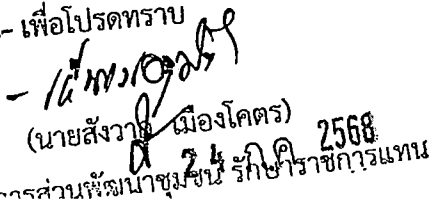 - เพื่อโปรดทราบ
-
(นายสังวาลย์ เมืองโคตร)
24 ก.ค. 2568
การส่วนพัฒนาชุมชน รักษาราชการแทน